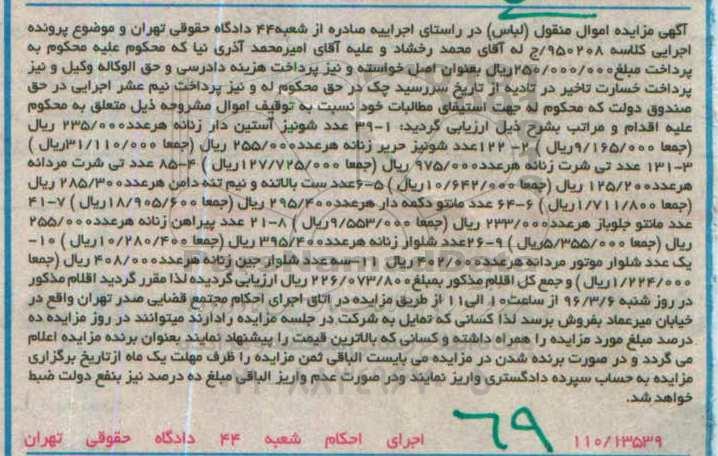 آگهی مزایده اموال منقول (لباس) در راستای اجراییه صادره از شعبه۴۴ دادگاه حقوقی تهران و موضوع پرونده
اجرایی کلاسه ۹۵۰۲۰۸/ج له آقای محمد رخشاد و علیه آقای امیرمحمد آذری نیا که محکوم علیه محکوم به
پرداخت مبلغ۲۵۰/۰۰۰/۰۰۰ریال بعنوان اصل خواسته و نیز پرداخت هزینه دادرسی و حق الوکاله وکیل و نیز
پرداخت خسارت تاخیر در تادیه از تاریخ سررسید چک در حق محکوم له و نیز پرداخت نیم عشر اجرایی در حق
صندوق دولت که محکوم له جهت استیفای مطالبات خود نسبت به توقیف اموال مشروحه ذیل متعلق به محکوم
علیه اقدام و مراتب بشرح ذیل ارزیابی گردید: ۱-۳۹ عدد شونیز آستین دار زنانه هرعدد۲۳۵/۰۰۰ ریال
(جمعا ۹/۱۶۵/۰۰۰ریال) ۲- ۱۲۲عدد شونیز حریر زنانه هرعدد۲۵۵/۰۰۰ ریال (جمعا ۳۱/۱۱۰/۰۰۰ریال)
۳-۱۳۱ عدد تی شرت زنانه هرعدد۹۷۵/۰۰۰ ریال (جمعا ۱۲۷/۷۲۵/۰۰۰ریال) ۴-۸۵ عدد تی شرت مردانه
هرعدد۱۲۵/۲۰۰ ریال (جمعا ۱۰/۶۴۲/۰۰۰ریال) ۵-۶عدد ست بالاتنه و نیم تنه دامن هرعدد۲۸۵/۳۰۰ ریال
(جمعا ۱/۷۱۱/۸۰۰ریال) ۶-۶۴ عدد مانتو دکمه دار هرعدد۲۹۵/۴۰۰ ریال (جمعا ۱۸/۹۰۵/۶۰۰ریال) ۷-۴۱
عدد مانتو جلوباز هرعدد۲۳۳/۰۰۰ ریال (جمعا ۹/۵۵۳/۰۰۰ریال) ۸-۲۱ عدد پیراهن زنانه هرعدد۲۵۵/۰۰۰
ریال (جمعا ۵/۳۵۵/۰۰۰ریال) ۹-۲۶عدد شلوار زنانه هرعدد۳۹۵/۴۰۰ ریال (جمعا ۱۰/۲۸۰/۴۰۰ریال) ۱۰-
یک عدد شلوار موتور مردانه هرعدد۴۰۲/۰۰۰ ریال ۱۱-سه عدد شلوار جین زنانه هرعدد۴۰۸/۰۰۰ ریال (جمعا
۱/۲۲۴/۰۰۰ریال) و جمع کل اقلام مذکور بمبلغ۲۲۶/۰۷۳/۸۰۰ ریال ارزیابی گردیده لذا مقرر گردید اقلام مذکور
در روز شنبه ۹۶/۳/۶ از ساعت۱۰ الی۱۱ از طریق مزایده در اتاق اجرای احکام مجتمع قضایی صدر تهران واقع در
خیابان میرعماد بفروش برسد لذا کسانی که تمایل به شرکت در جلسه مزایده را دارند میتوانند در روز مزایده ده
درصد مبلغ مورد مزایده را همراه داشته و کسانی که بالاترین قیمت را پیشنهاد نمایند بعنوان برنده مزایده اعلام
می گردد و در صورت برنده شدن در مزایده می بایست الباقی ثمن مزایده را ظرف مهلت یک ماه ازتاریخ برگزاری
مزایده به حساب سپرده دادگستری واریز نمایند ودر صورت عدم واریز الباقی مبلغ ده درصد نیز بنفع دولت ضبط
خواهد شد.
۱۱۰/۱۳۵۳۹ ۶۹ اجرای احکام شعبه ۴۴ دادگاه حقوقی تهران